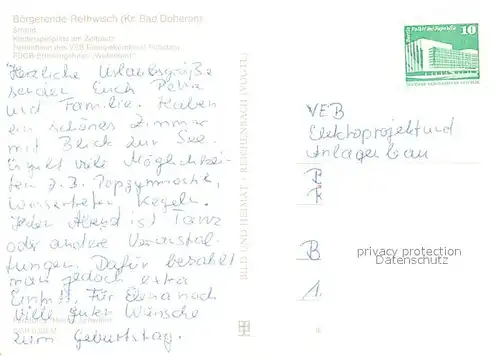 Börgerende Rethwisch (Kr. Bad Doberan)
Strand
Kinderspielplatz am Zeltplatz
Ferienheim des VEB
FDGB-Erholungsheim "Waterkant"
Herzliche Urlaubsgrüße
senden Euch Petra
und Familie. Haben
ein schönes Zimmer
mit Blick zur See.
Es gibt viele Möglichkei-
ten z.B. Popgymnastik,
Wassertreten, Kegeln.
Jeden Abend ist Tanz
oder andere Veranstal-
tungen. Dafür bezahlt
man jedoch extra
Eintritt. Für Elena noch
viele guten Wünsche
zum Geburtstag.
BILD UND HEIMAT · REICHENBACH (VOGTL)
10
VEB
Elektroprojekt und
Anlagenbau
B
1
privacy protection
Datenschutz